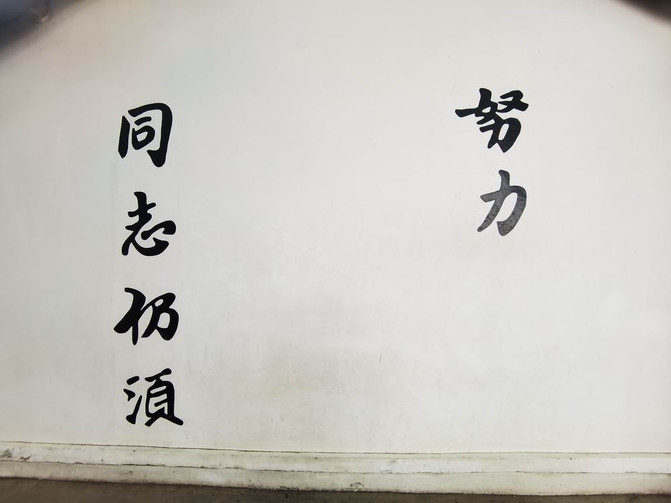 同志仍須
努力